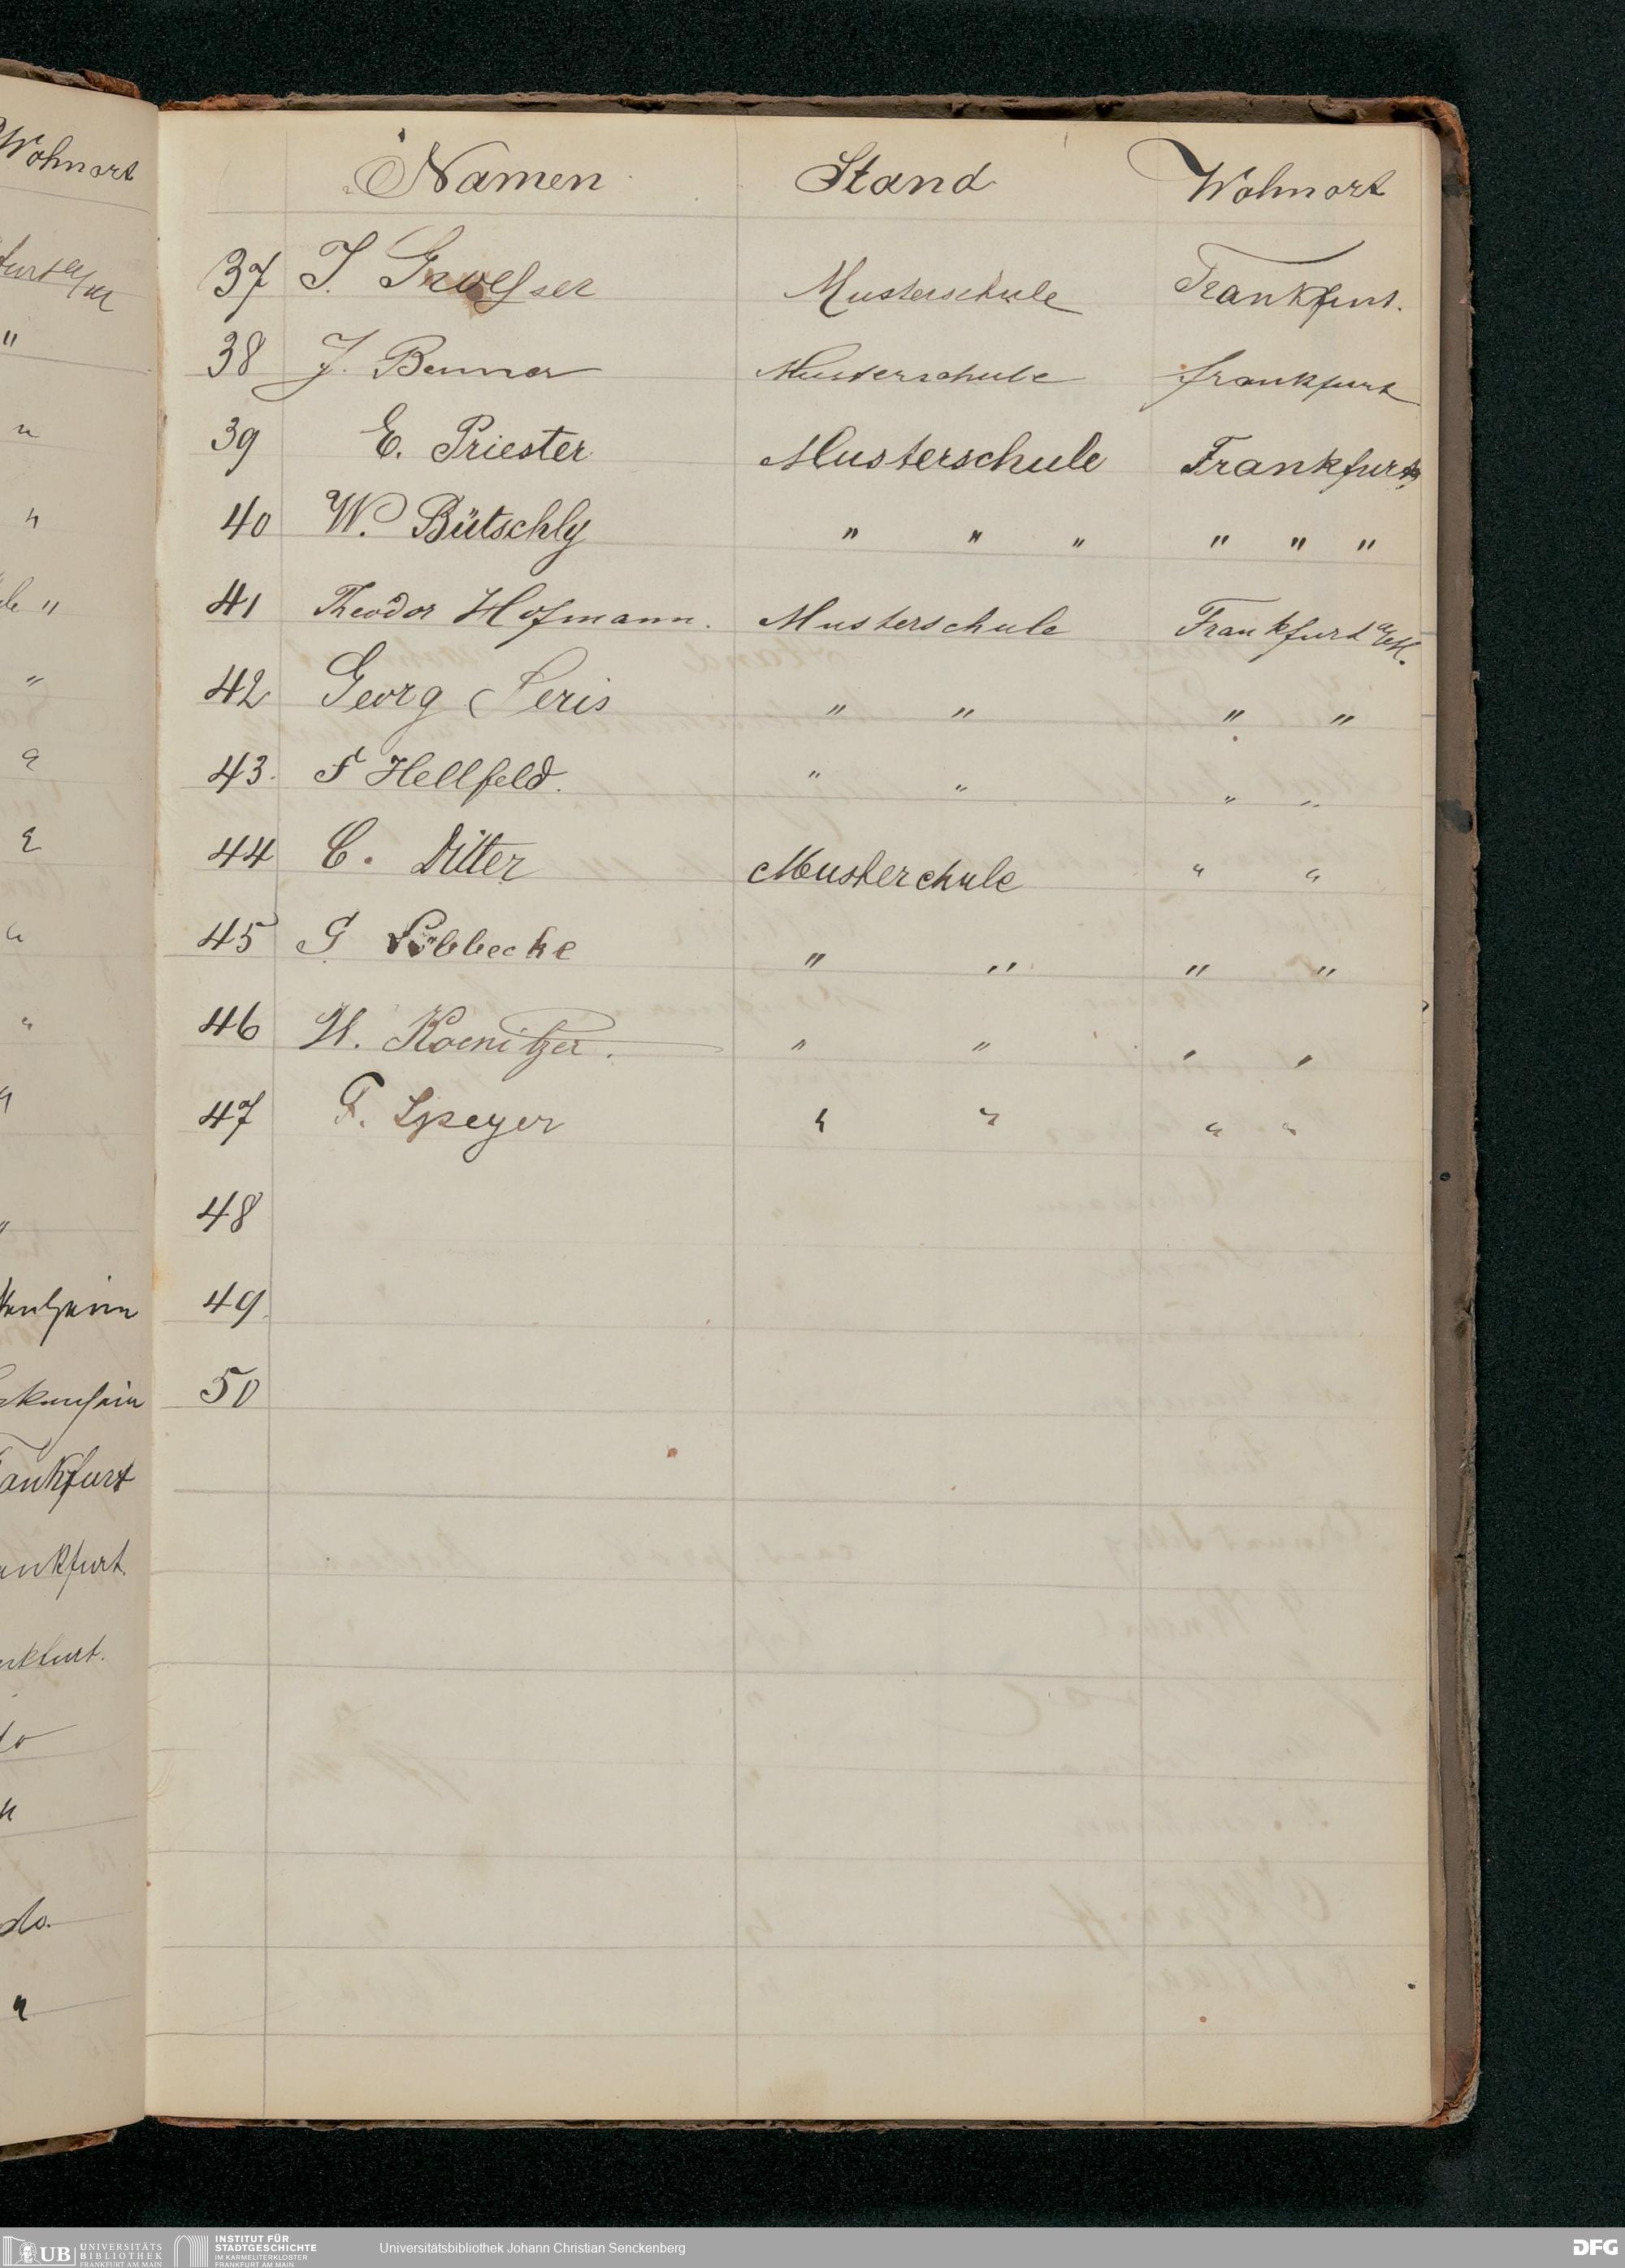 Wohnort
"
"
"
ankfurt
ankfurt.
do
do.
"
Namen Stand Wohnort
37 J. Musterschule Frankfurt.
38 J. Benner Musterschule Frankfurt
39 E. Priester Musterschule Frankfurt
40 W. Bütschly " " " " " "
41 Theodor Hofmann. Musterschule Frankfurt a/M.
42 Georg Seris " " " "
43. F Hellfeld. " " " "
44 C. Ditter Musterchule " "
45 G Löbbecke " " " "
46 H. Koenitzer. " " " "
47 F. Speyer " " " "
48
49.
50
UB UNIVERSITÄTS
BIBLIOTHEK
FRANKFURT AM MAIN
INSTITUT FÜR
STADTGESCHICHTE
IM KARMELITERKLOSTER
FRANKFURT AM MAIN
Universitätsbibliothek Johann Christian Senckenberg
DFG